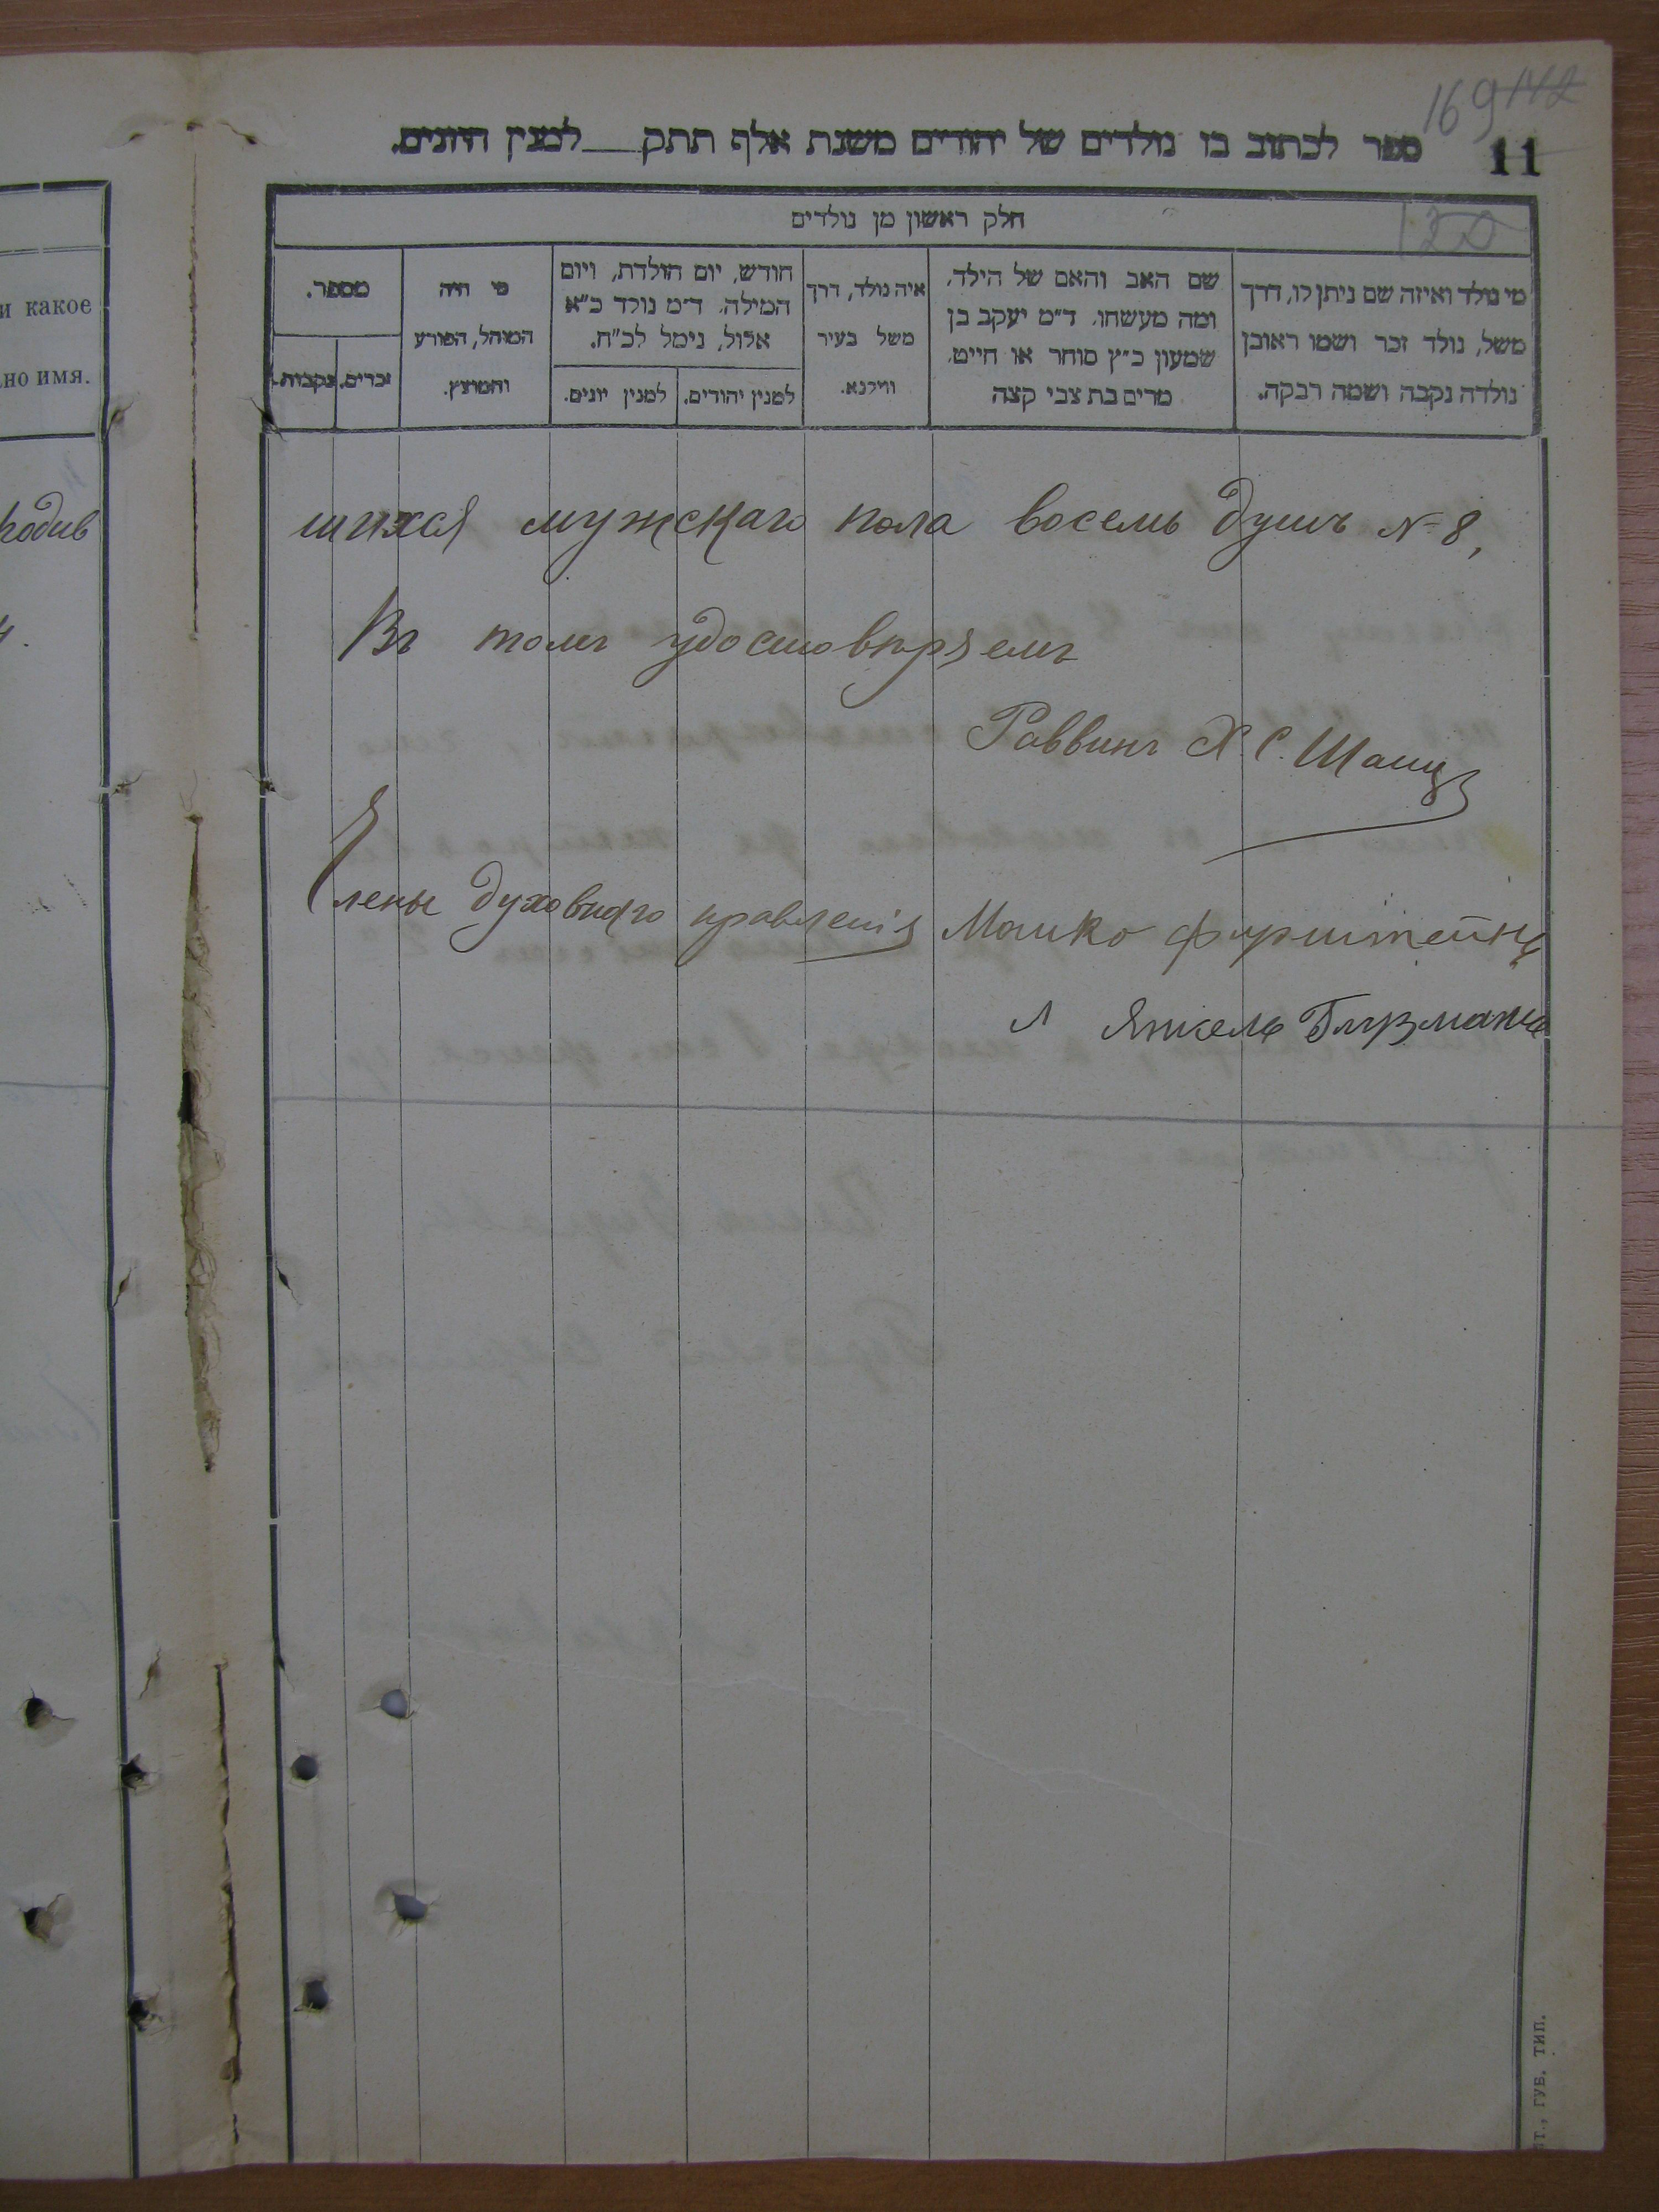 169 142
11
ספר לכתוב בו נולדים של יהודים משנת אלף תתק___למנין היונים.
חלק ראשון מן נולדים
מי נולד ואיזה שם ניתן לו, דרך
משל, נולד זכר ושמו ראובן
נולדה נקבה ושמה רבקה.
שם האב והאם של הילד,
ומה מעשהו. ד״מ יעקב בן
שמעון כ״ץ סוחר או חייט,
מרים בת צבי קצה
איה נולד, דרך
משל בעיר
ווילנא.
חודש, יום הולדת, ויום
המילה. ד״מ נולד כ״א
אלול, נימל לכ״ח.
למנין יהודים.
למנין יונים.
מי היה
המוהל, הפורע
והמוצץ.
מספר.
זכרים.
נקבות.
и какое
но имя.
родив
шихся мужскаго пола восемь душъ № 8,
Въ томъ удостовѣряемъ
Раввинъ Х. С. Шацъ
Члены духовнаго правленія Мошко
Янкель
ГУБ. ТИП.